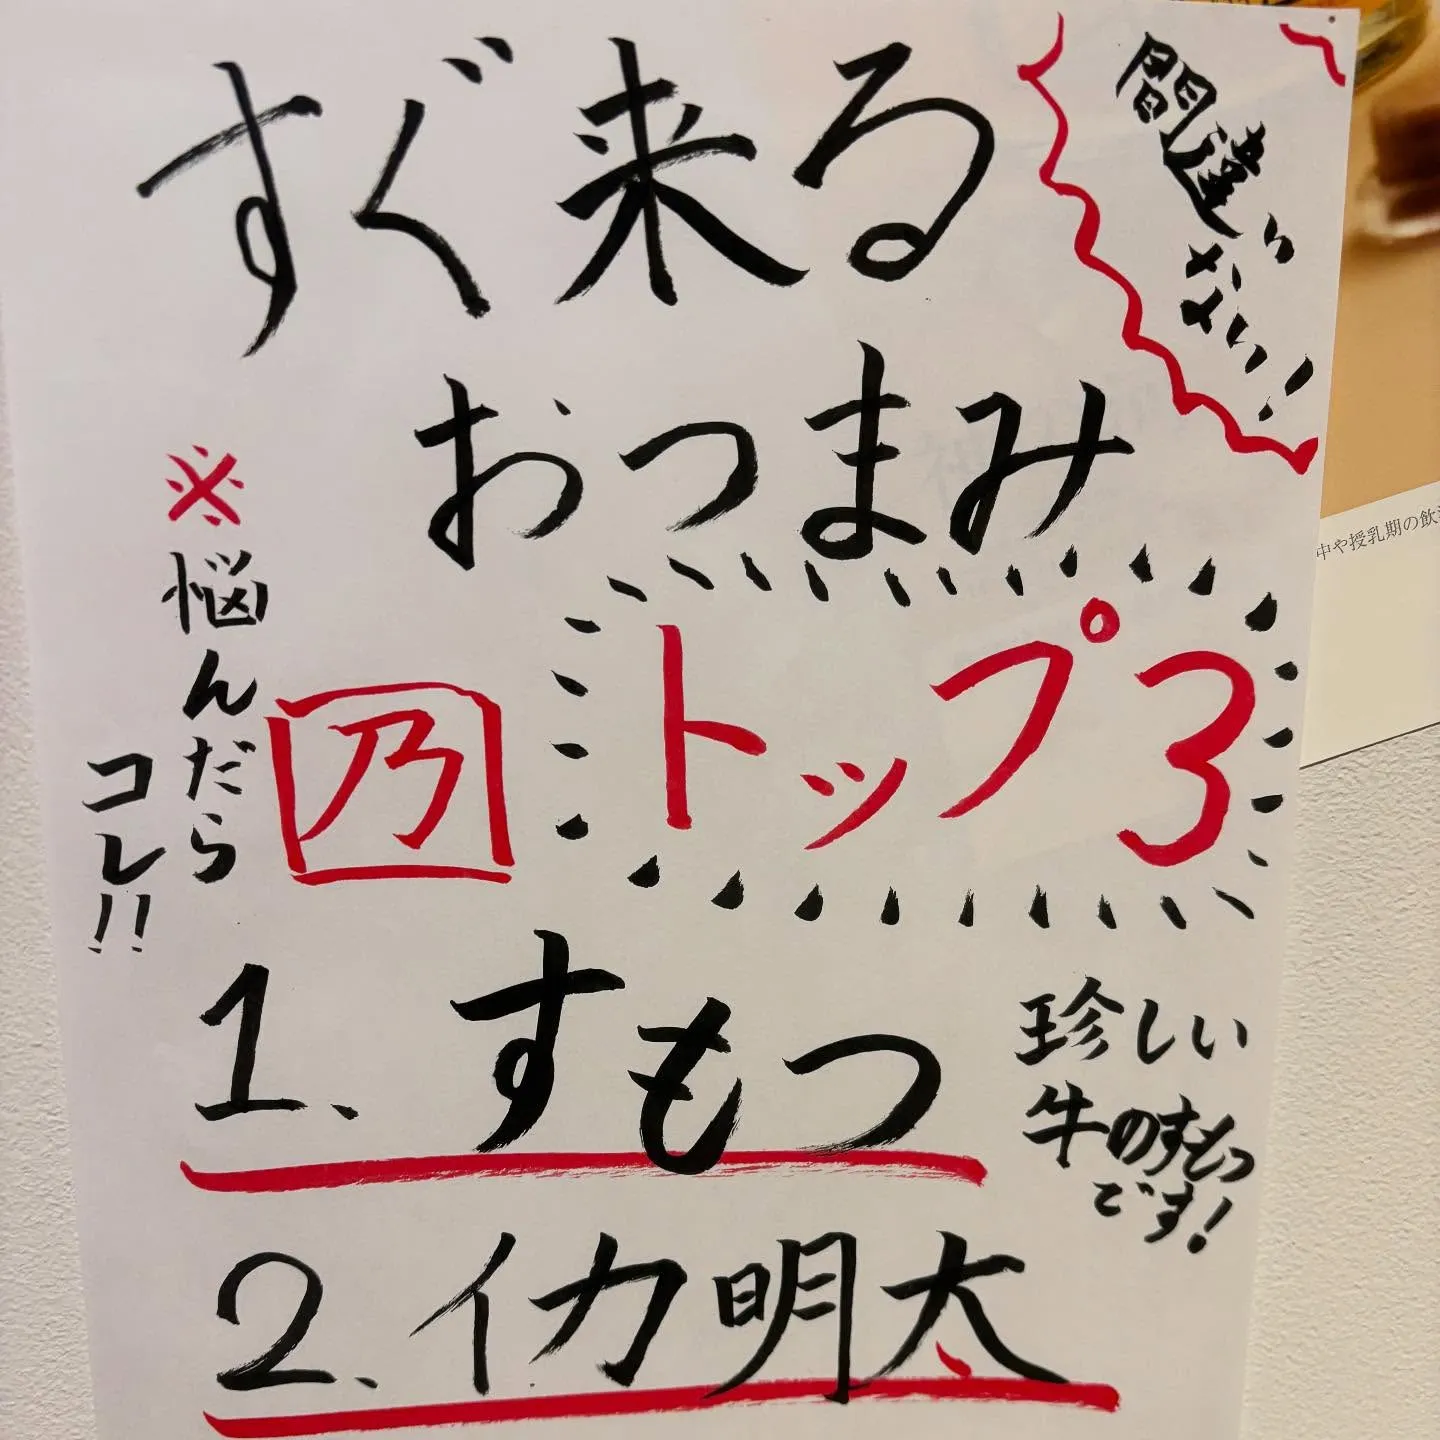 すぐ来る
間違い
ない！
おつまみ
※悩んだら
コレ!!
乃
トップ3
1、すもつ
珍しい
牛のすもつ
です！
2、イカ明太
中や授乳期の飲